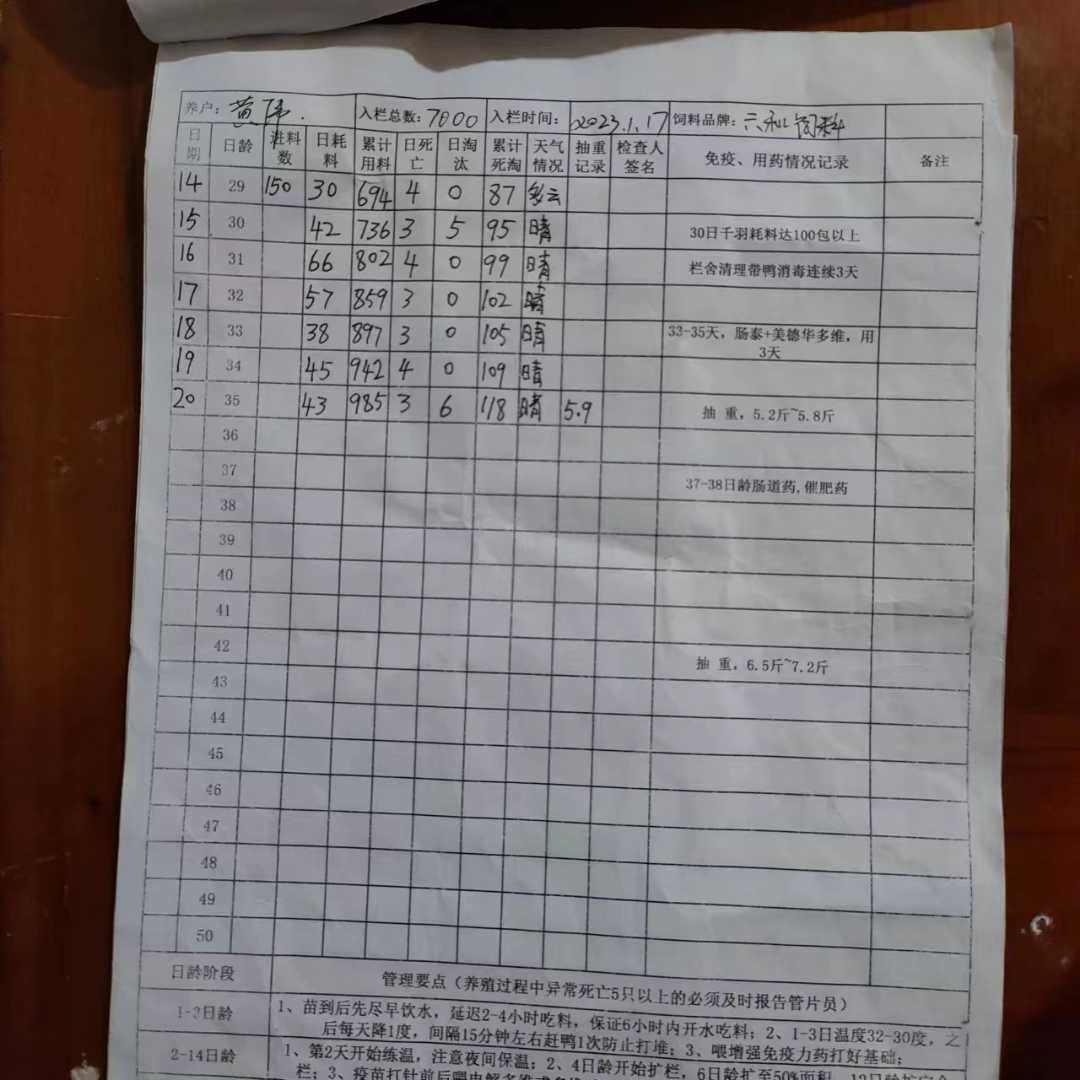 养户: 黄伟. 入栏总数: 7000 入栏时间: 2023.1.17 饲料品牌: 六和饲料
日期 日龄 进料数 日耗料 累计用料 日死亡 日淘汰 累计死淘 天气情况 抽重记录 检查人签名 免疫、用药情况记录 备注
14 29 150 30 694 4 0 87 多云
15 30 42 736 3 5 95 晴 30日千羽耗料达100包以上
16 31 66 802 4 0 99 晴 栏舍清理带鸭消毒连续3天
17 32 57 859 3 0 102 晴
18 33 38 897 3 0 105 晴 33-35天，肠泰+美德华多维，用3天
19 34 45 942 4 0 109 晴
20 35 43 985 3 6 118 晴 5.9 抽 重，5.2斤~5.8斤
36
37 37-38日龄肠道药,催肥药
38
39
40
41
42 抽 重，6.5斤~7.2斤
43
44
45
46
47
48
49
50
日龄阶段 管理要点（养殖过程中异常死亡5只以上的必须及时报告管片员）
1-3日龄 1、苗到后先尽早饮水，延迟2-4小时吃料，保证6小时内开水吃料；2、1-3日温度32-30度，之
后每天降1度，间隔15分钟左右赶鸭1次防止打堆；3、喂增强免疫力药打好基础；
2-14日龄 1、第2天开始练温，注意夜间保温；2、4日龄开始扩栏，6日龄扩至50%面积，12日龄扩完全
栏；3、疫苗打针前后喂电解多维或多维